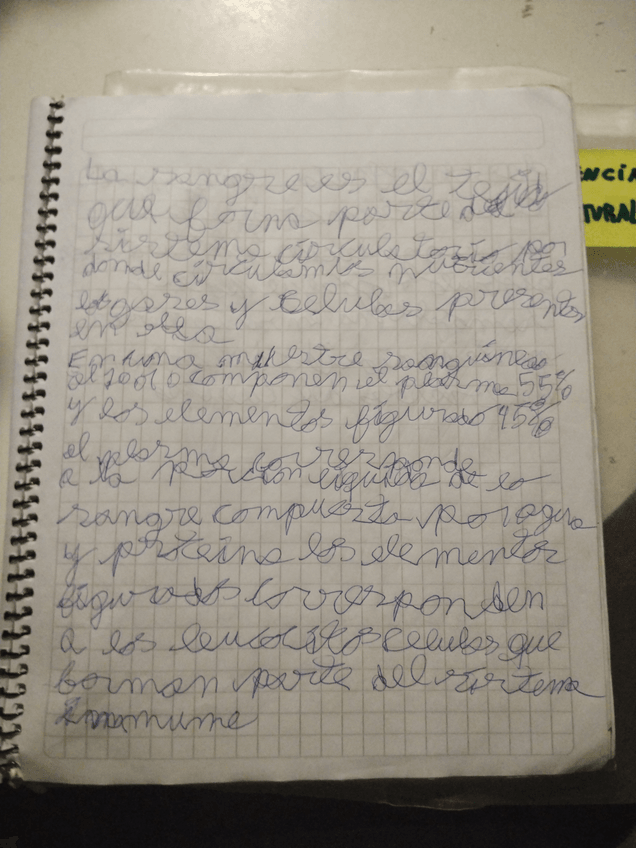 La sangre es el tejido
que forma parte del
sistema circulatorio por
donde circulan nutrientes
gases y celulas presentes
en ella
En una muestre sanguinea
al 100% componen el plasma 55%
y los elementos figurado 45%
el plasma corresponde
a la porcion liquida de la
sangre compuesta por agua
y proteina los elementos
figurados corresponden
a los leucocitos celulas que
forman parte del sistema
inmune
ENCIA
TURAL